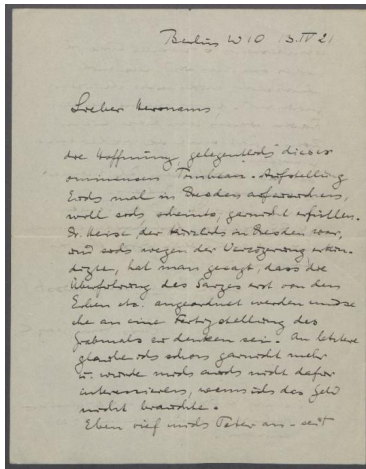 Berlin W 10 3. IV 21
Lieber Hermanns
die Hoffnung, gelegentlich dieser
ominensen Aufstellung
mal in Dresden aufwarten,
will sich scheints, garnicht erfüllen.
Dr. Heise der kürzlich in Dresden war,
und sich wegen der Verzögerung erkun
digte, hat man gesagt, dass die
Überführung des Sarges erst von den
Erben etc. angeordnet werden müsse
ehe an eine Fertigstellung des
Grabmals zu denken sei. An letztere
glaube ich schon garnicht mehr
u. würde mich auch nicht dafür
interessieren, wenn ich das Geld
nicht brauchte.
Eben rief mich Peter an - seit